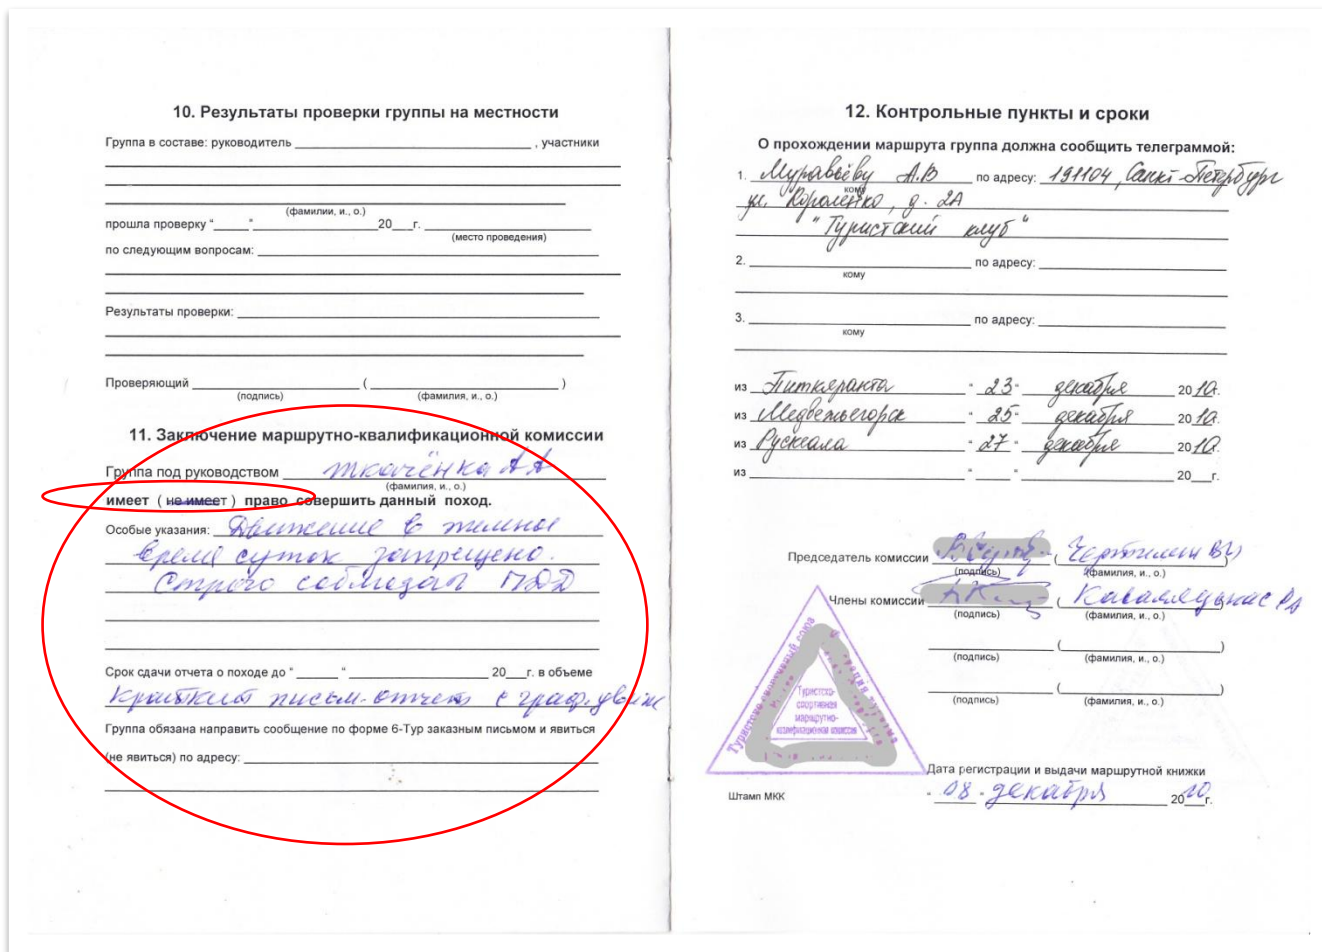 10. Результаты проверки группы на местности
Группа в составе: руководитель , участники
(фамилии, и., о.)
прошла проверку “ ” 20 г.
(место проведения)
по следующим вопросам:
Результаты проверки:
Проверяющий ( )
(подпись) (фамилия, и., о.)
11. Заключение маршрутно-квалификационной комиссии
Группа под руководством Ткачёнка А А
(фамилия, и., о.)
имеет ( не имеет ) право совершить данный поход.
Особые указания: Движение в темное
время суток запрещено.
Строго соблюдать ПДД
Срок сдачи отчета о походе до “ “ 20 г. в объеме
Краткий письм. отчет с граф.
Группа обязана направить сообщение по форме 6-Тур заказным письмом и явиться
(не явиться) по адресу:
12. Контрольные пункты и сроки
О прохождении маршрута группа должна сообщить телеграммой:
1. Муравьёву А.В по адресу: 191104, Санкт-Петербург
кому
ул. Короленко, д. 2А
"Туристский клуб"
2. по адресу:
кому
3. по адресу:
кому
из Питкяранта " 23 " декабря 2010г.
из Медвежьегорск " 25 " декабря 2010г.
из Рускеала " 27 " декабря 2010г.
из " " 20 г.
Председатель комиссии (
(подпись) (фамилия, и., о.)
Члены комиссии ( )
(подпись) (фамилия, и., о.)
( )
(подпись) (фамилия, и., о.)
( )
(подпись) (фамилия, и., о.)
Туристско-спортивный союз
Туристско-
спортивная
маршрутно-
квалификационная комиссия
Дата регистрации и выдачи маршрутной книжки
Штамп МКК
" 08 " декабря 2010 г.